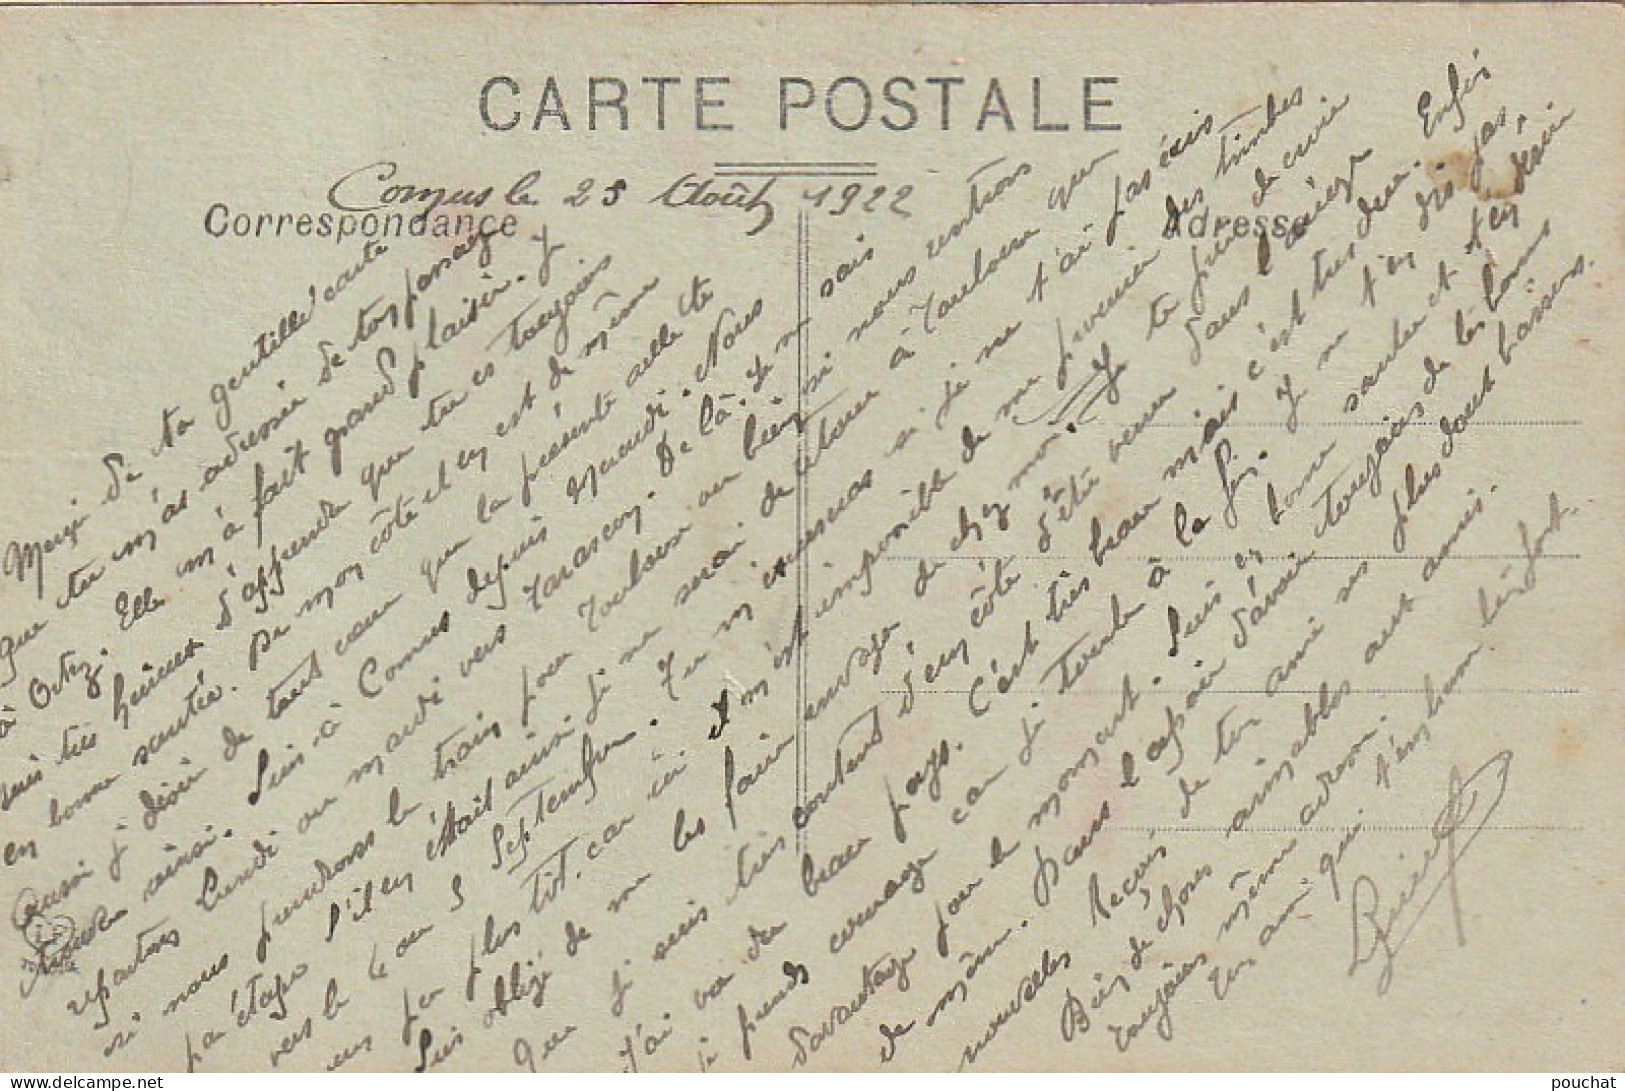 CARTE POSTALE
Comus le 25 Août 1922
Correspondance
Adresse
Merci de ta gentille carte
que tu m'as adressée de ton passage
à Ortez. Elle m'a fait grand plaisir. J
suis très heureux d'apprendre que tu es toujours
en bonne santée. De mon côté il en est de même
Aussi j désire de tout cœur que la présente aille te
trouver ainsi. Suis à Comus depuis Mardi. Nous
repartons Lundi ou mardi vers Tarascon. De là je ne sais
si nous prendrons le train pour Toulouse ou bien si nous rentrons
par étape s'il en était ainsi je ne serai de retour à Toulouse que
vers le 4 ou 5 Septembre. Tu m'excuseras si je ne t'ai pas écris
plus tôt. car ici il m'est impossible de me procurer des timbres
Suis obligé de me les faire envoyer de chez moi. Je te prie de croire
que je suis très content d'un côté d'être venu dans l'ariège
J'ai vu du beau pays. C'est très beau mais c'est très dur. Enfin
je prends courage car je touche à la fin. J ne t'en dis pas
davantage pour le moment. Suis en bonne santée et t'en désire
de même. Dans l'espoir d'avoir toujours de tes bonnes
nouvelles Reçois de ton ami ses plus doux baisers.
Bien de choses aimables aux amis.
Toujours même adresse.
Ton ami qui t'embrasse bien fort.
pouchat